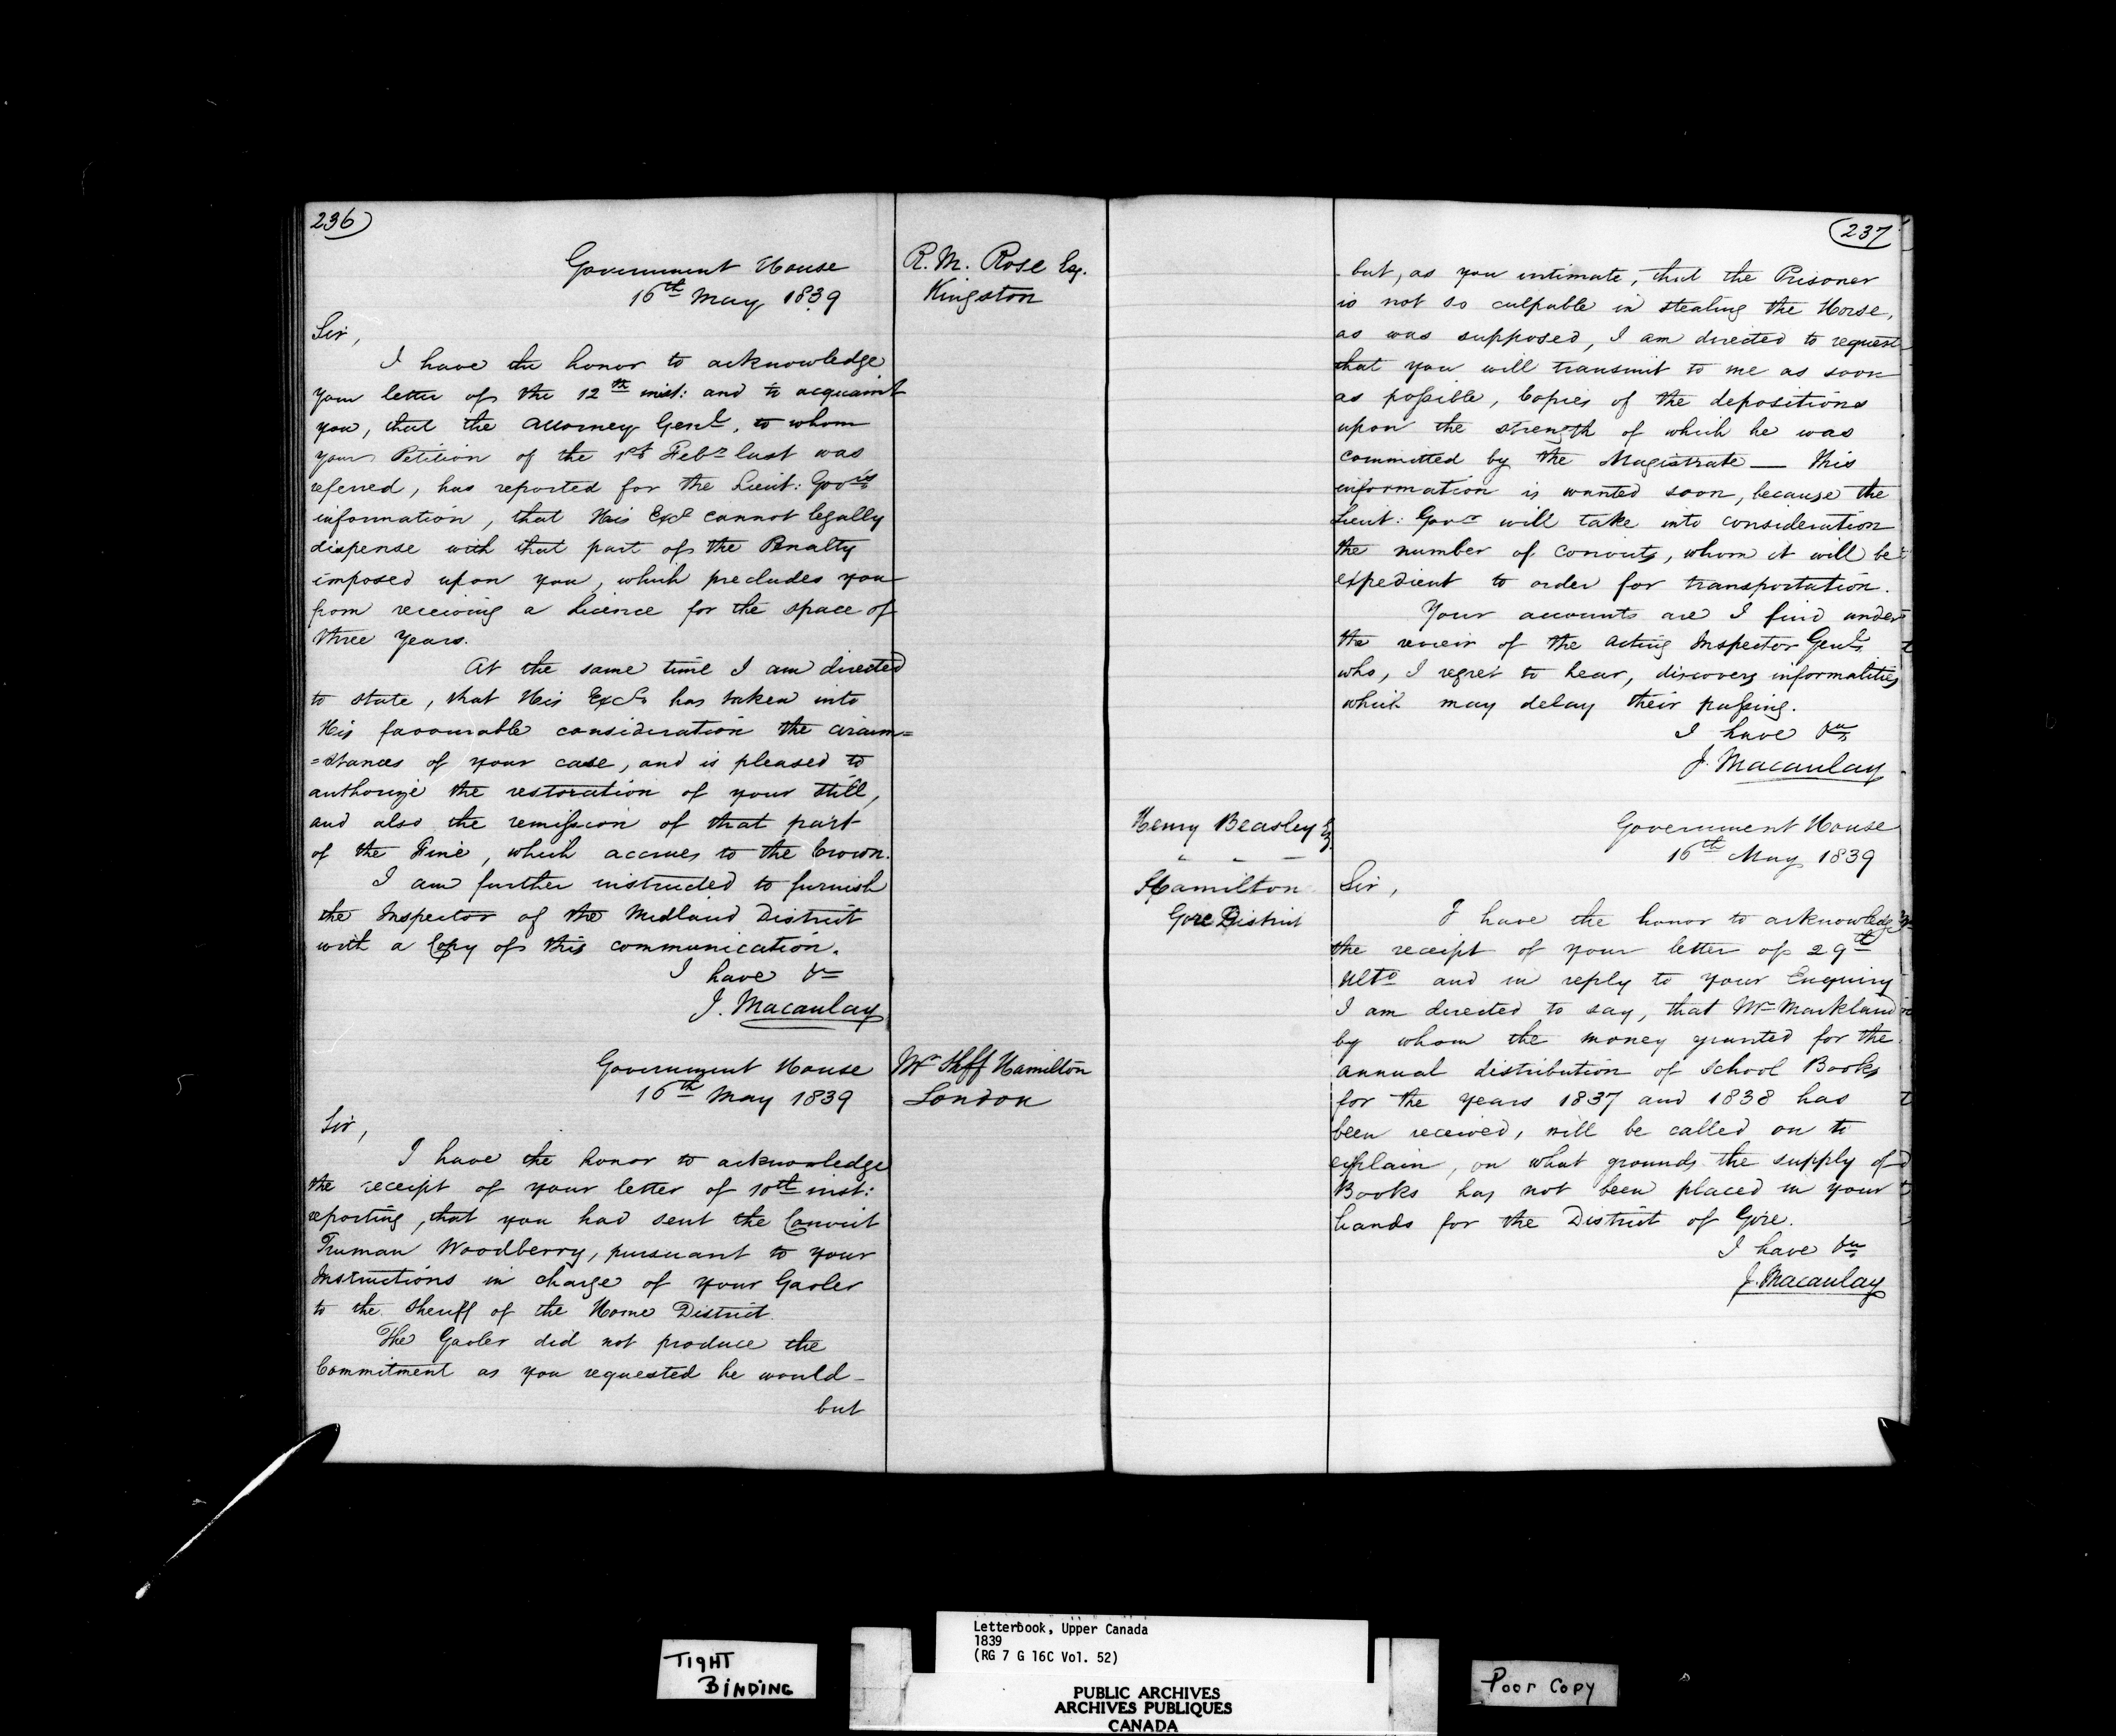 236
Government House
16th May 1839
R. M. Rose Esq.
Kingston
Sir,
I have the honor to acknowledge
your letter of the 12th inst: and to acquaint
you, that the Attorney Genl, to whom
your Petition of the 1st Feby last was
referred, has reported for the Lieut: Govrs
information, that His Excy cannot legally
dispense with that part of the Penalty
imposed upon you, which precludes you
from receiving a Licence for the space of
three Years.
At the same time I am directed
to state, that His Excy has taken into
His favourable consideration the circum=
=stances of your case, and is pleased to
authorize the restoration of your Still,
and also the remission of that part
of the Fine, which accrues to the Crown.
I am further instructed to furnish
the Inspector of the Midland District
with a Copy of this communication.
I have &c
J. Macaulay
Government House
16th May 1839
Mr Shff Hamilton
London
Sir,
I have the honor to acknowledge
the receipt of your letter of 10th inst:
reporting, that you had sent the Convict
Truman Woodberry, pursuant to your
Instructions in charge of your Gaoler
to the Sheriff of the Home District.
The Gaoler did not produce the
Commitment as you requested he would-
but
237
but, as you intimate, that the Prisoner
is not so culpable in stealing the Horse,
as was supposed, I am directed to request
that you will transmit to me as soon
as possible, Copies of the depositions
upon the strength of which he was
committed by the Magistrate — this
information is wanted soon, because the
Lieut: Govr will take into consideration
the number of convicts, whom it will be
expedient to order for transportation.
Your accounts are I find under
the review of the acting Inspector Genl,
who, I regret to hear, discovers informalities
which may delay their passing.
I have &c
J. Macaulay
Henry Beasley Esq
Hamilton
Gore District
Government House
16th May 1839
Sir,
I have the honor to acknowledge
the receipt of your letter of 29th
Ulto and in reply to your Enquiry
I am directed to say, that Mr Markland
by whom the money granted for the
annual distribution of School Books
for the years 1837 and 1838 has
been received, will be called on to
explain, on what grounds the supply of
Books has not been placed in your
hands for the District of Gore.
I have &c
J. Macaulay
TIGHT
BINDING
Letterbook, Upper Canada
1839
(RG 7 G 16C Vol. 52)
PUBLIC ARCHIVES
ARCHIVES PUBLIQUES
CANADA
Poor Copy